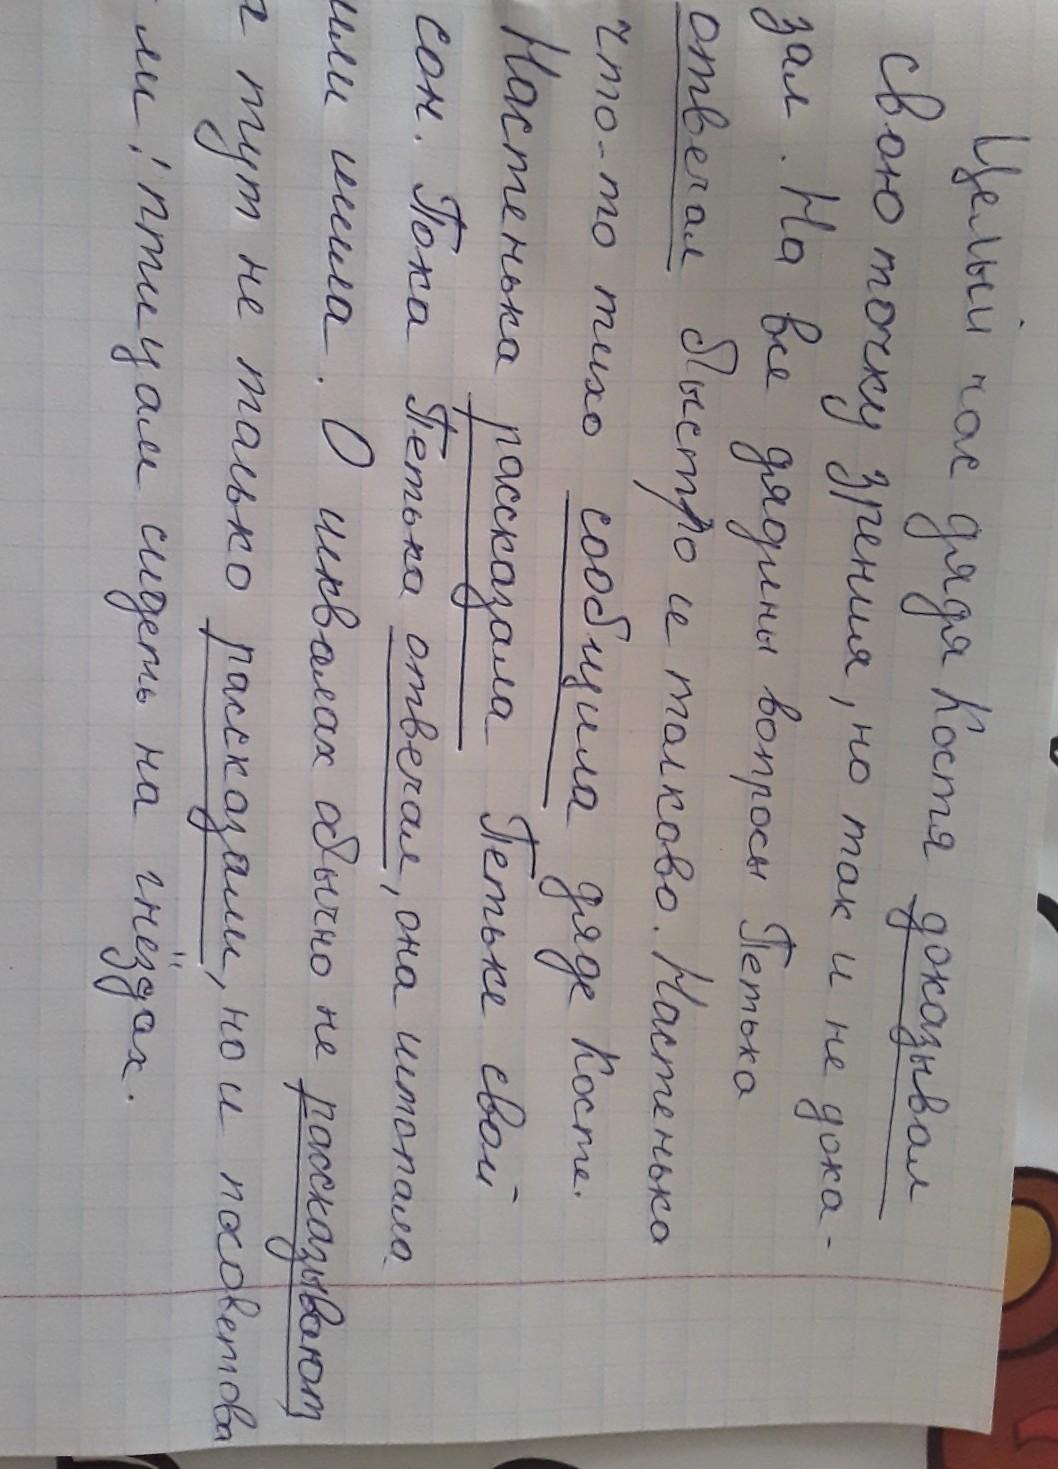 Целый час дядя Костя доказывал
свою точку зрения, но так и не дока-
зал. На все дядины вопросы Петька
отвечал быстро и толково. Настенька
что-то тихо сообщила дяде Косте.
Настенька рассказала Петьке свой
сон. Пока Петька отвечал, она штопала
или шила. О шквалах обычно не рассказывают
а тут не только рассказали, но и посоветова
ли птицам сидеть на гнёздах.